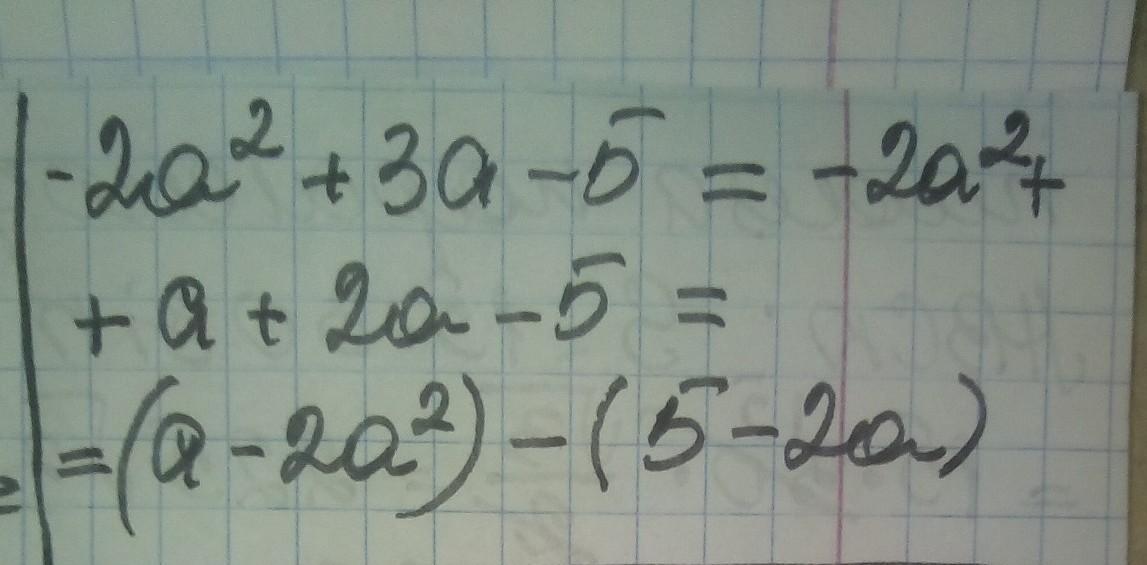 -2a² + 3a - 5 = -2a² +
+ a + 2a - 5 =
= (a - 2a²) - (5 - 2a)